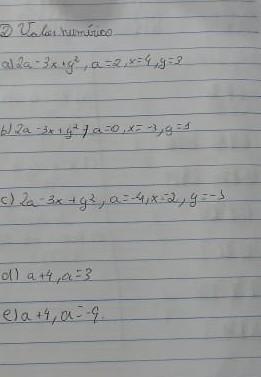 2) Valor numérico
a) 2a - 3x + y², a = 2, x = 4, y = 3
b) 2a - 3x + y², a = 0, x = -3, y = 1
c) 2a - 3x + y², a = -4, x = 2, y = -1
d) a + 4, a = 3
e) a + 4, a = -9.